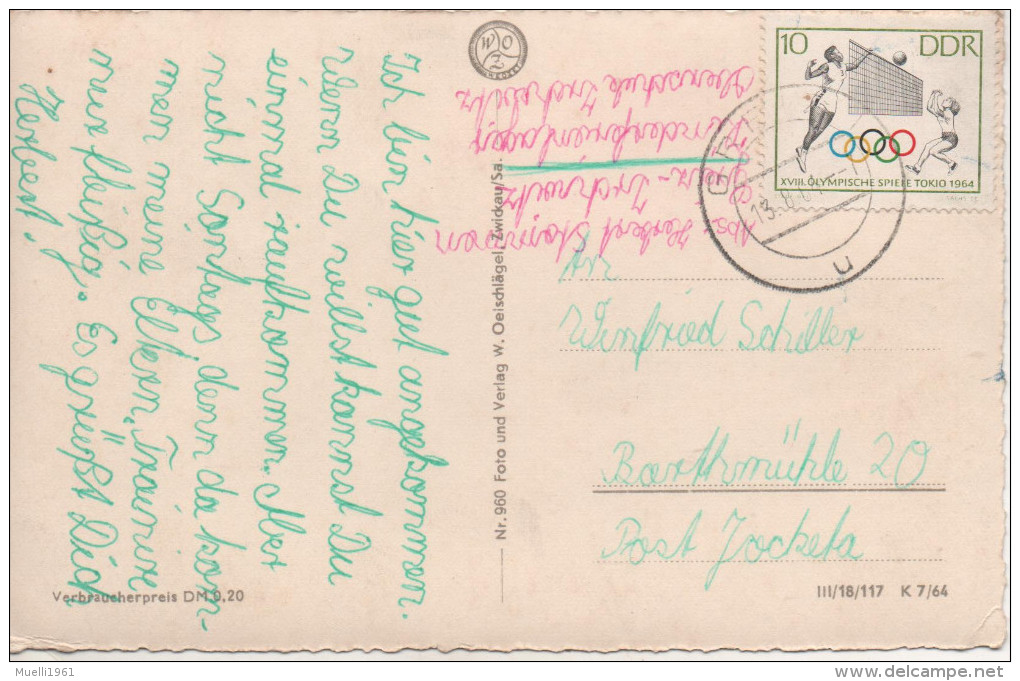 Ich bin hier gut angekommen.
Wenn Du willst kannst Du
einmal raufkommen. Aber
nicht Sontags denn da kom-
men meine Eltern. Trainire
nur fleißig. Es grüßt Dich
Herbert!
Abs. Herbert
Greiz-Irchwitz
Kinderferienlager
Oberschule Irchwitz
W O Z
10 DDR
XVIII. OLYMPISCHE SPIELE TOKIO 1964
GREIZ
13.8.
u
An
Winfried Schiller
Barthmühle 20
Post Jocketa
Nr. 960 Foto und Verlag W. Oelschlägel, Zwickau/Sa.
Verbraucherpreis DM 0,20
III/18/117 K 7/64
Muelli1961
delcampe.net